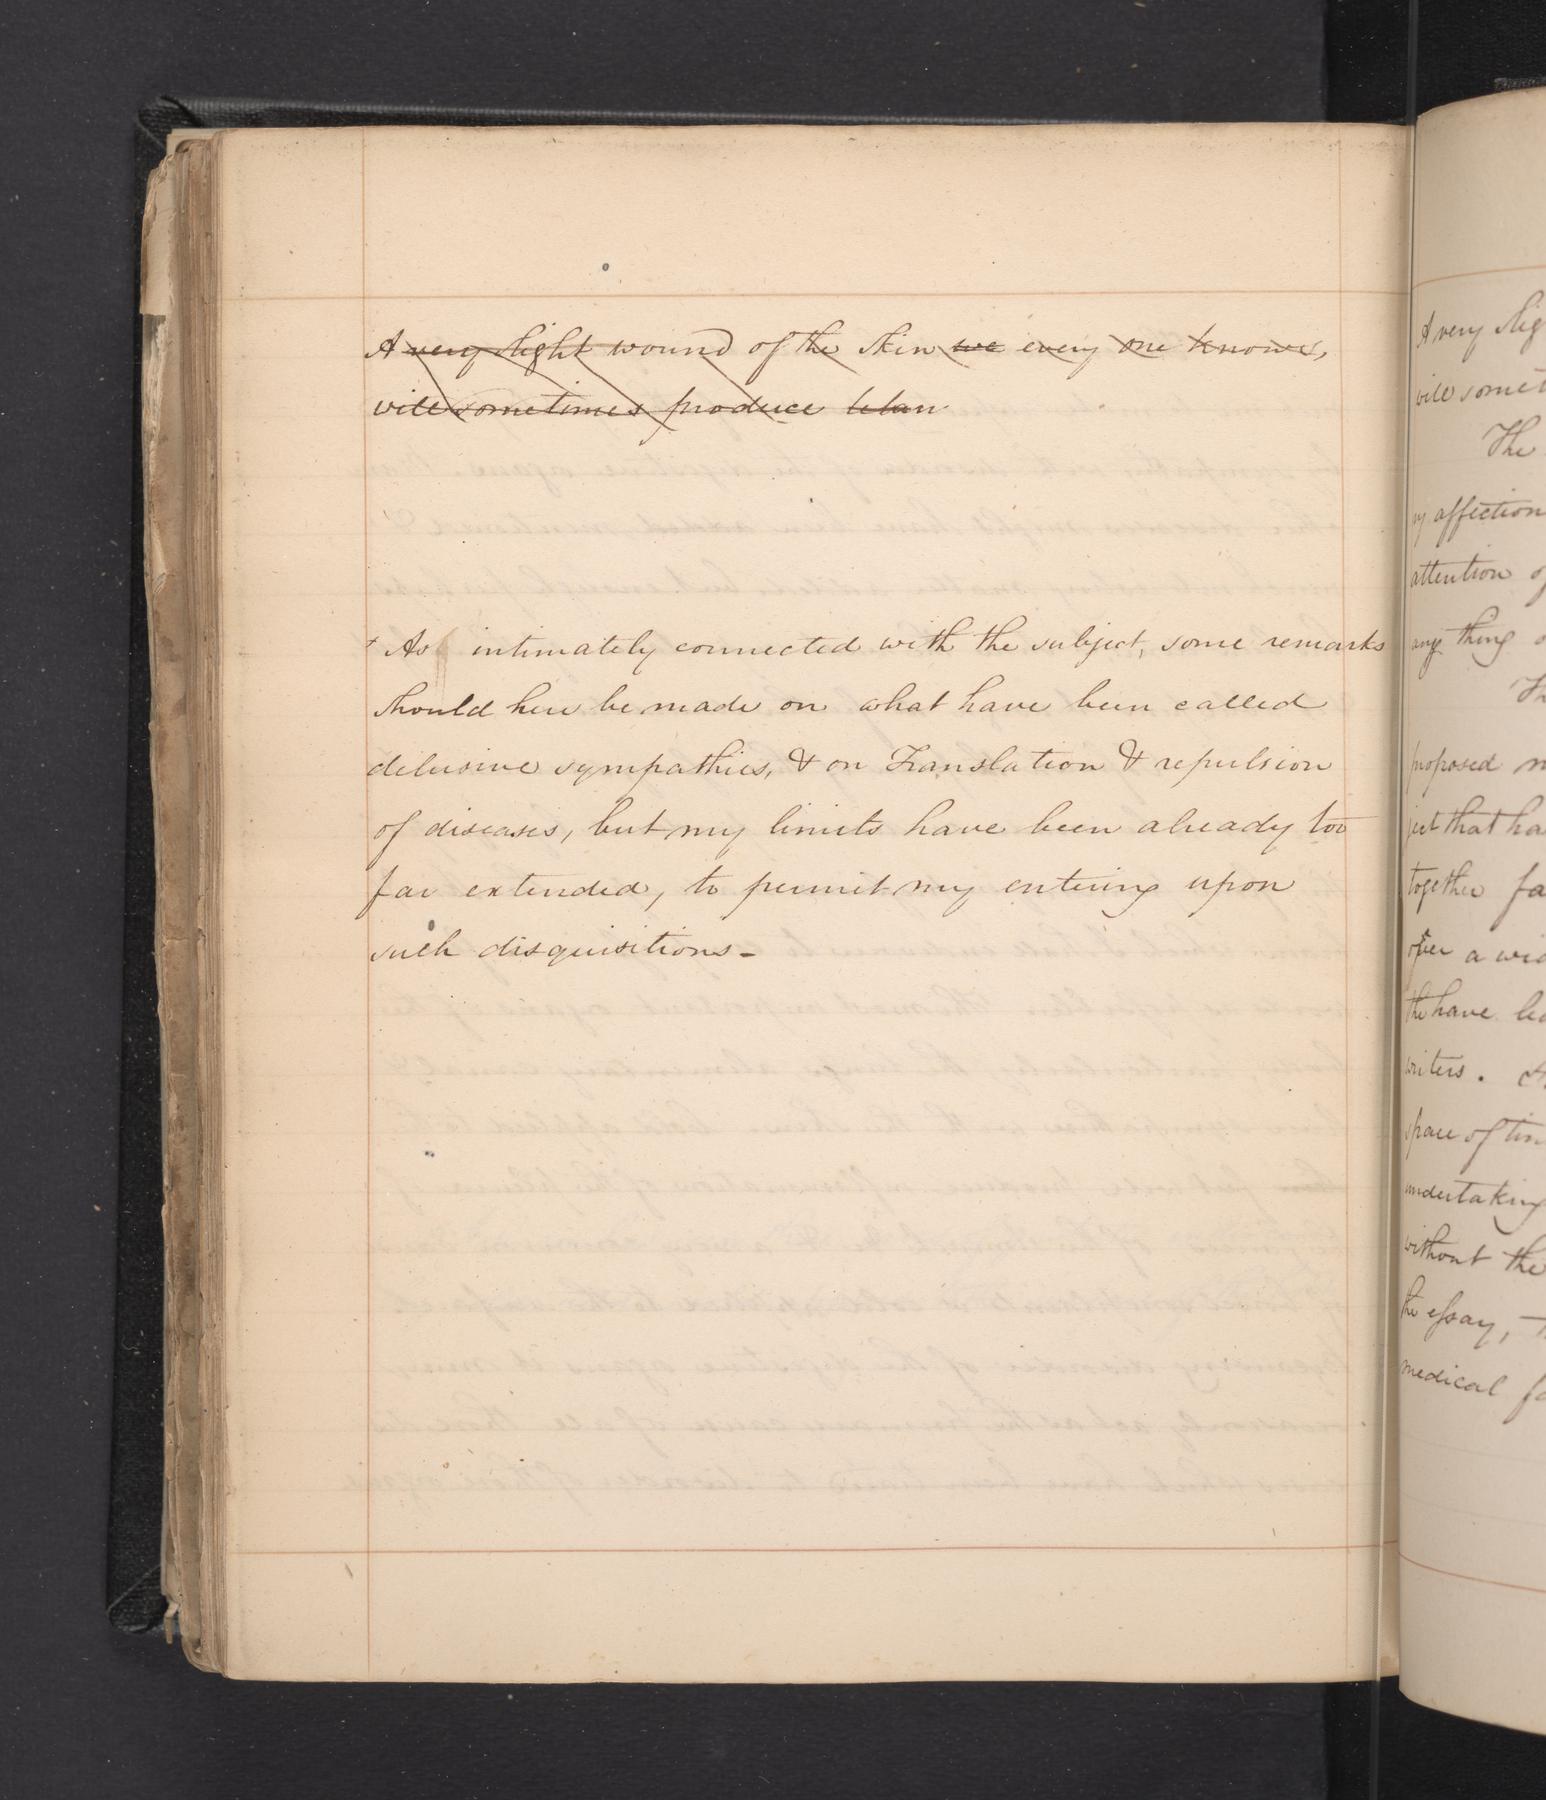 A very slight wound of the skin we every one knows,
will sometimes produce tetan
+ As intimately connected with the subject, some remarks
should here be made on what have been called
delusive sympathies, & on Translation & repulsion
of diseases, but my limits have been already too
far extended, to permit my entering upon
such disquisitions-
A very slig
will somet
The
affection
attention of
any thing
Th
proposed
ject that ha
together fa
over a wid
the have be
writers.
space of tim
undertaking
without the
the essay,
medical fa